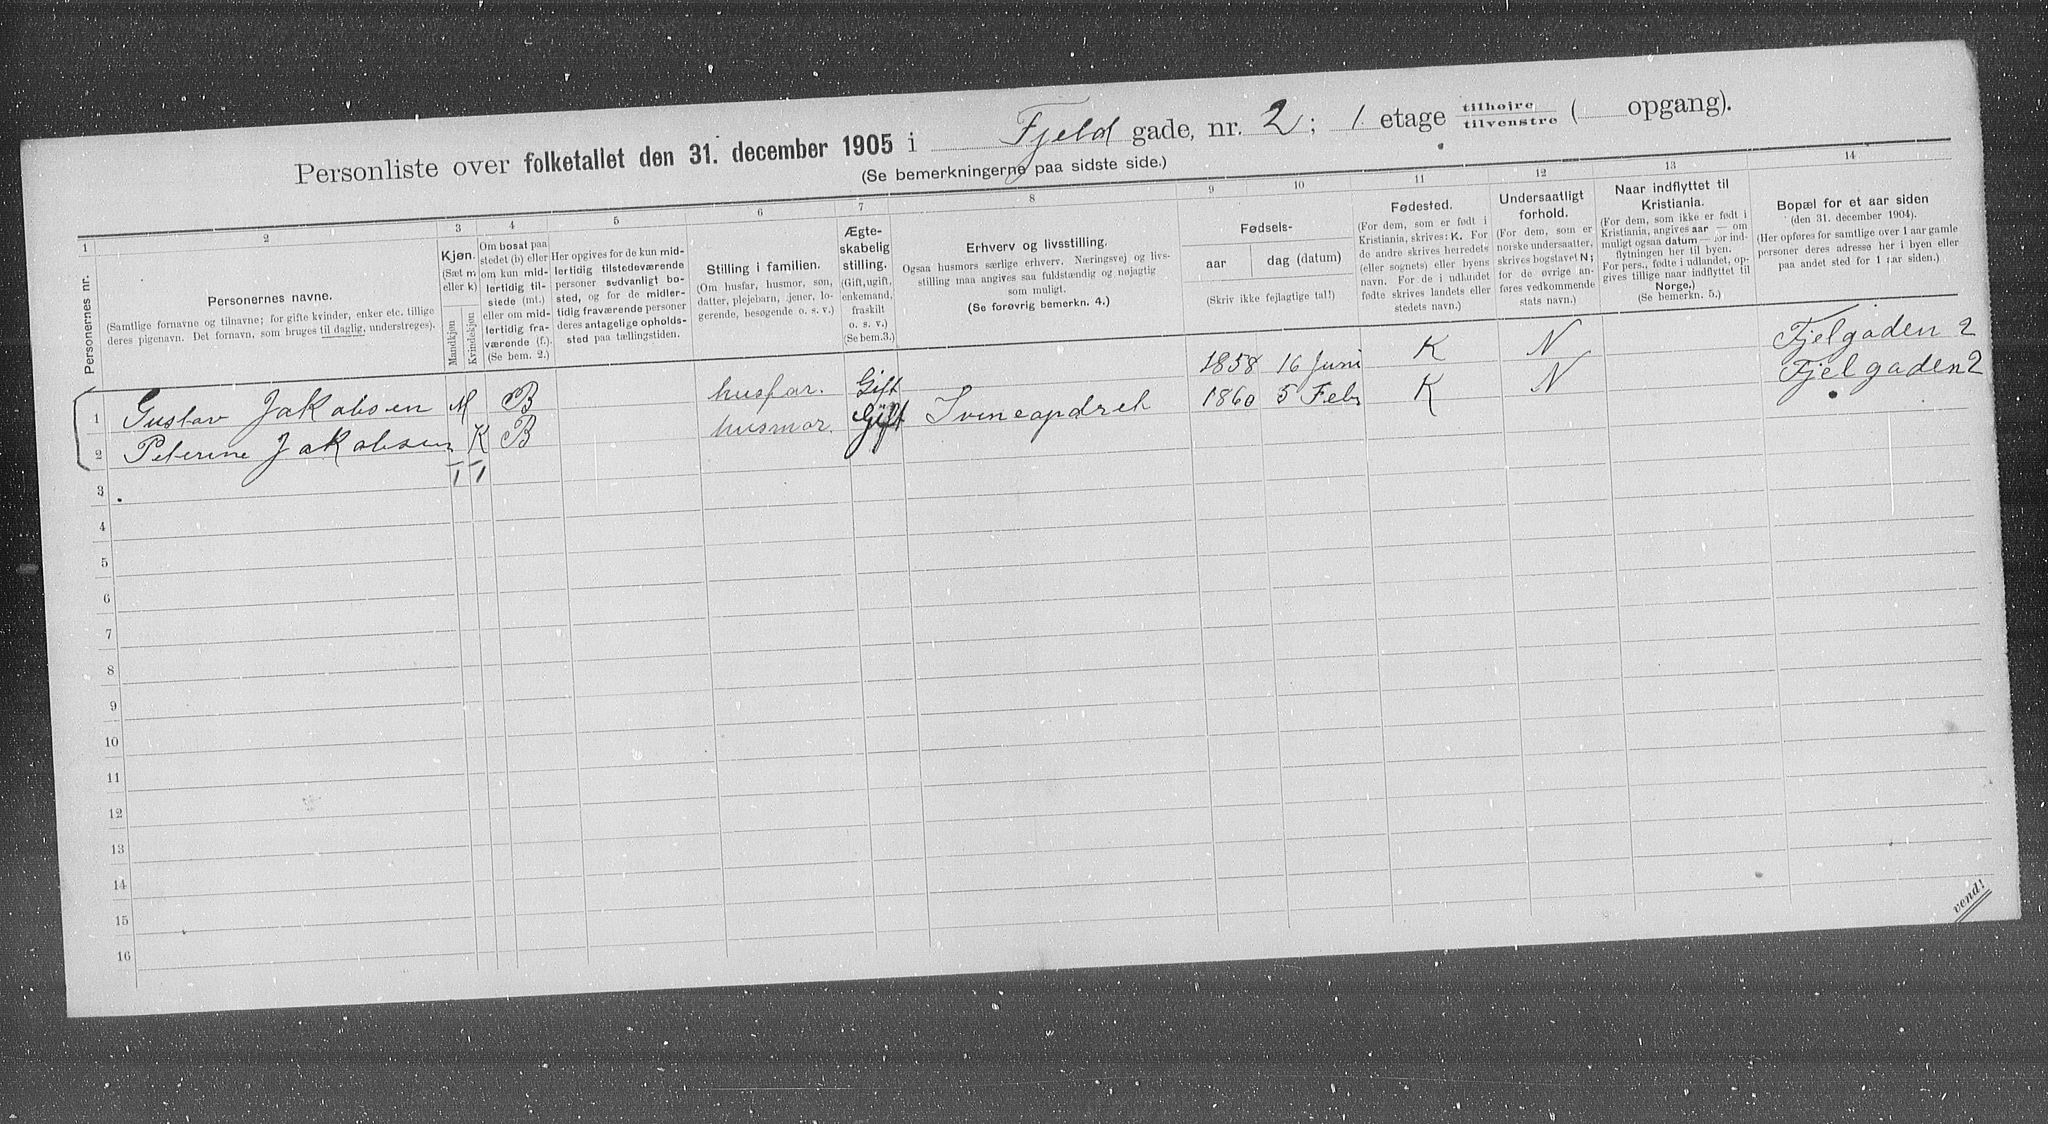 Personliste over folketallet den 31. december 1905 i Fjeld gade, nr. 2; 1 etage tilhøire tilvenstre ( opgang).
(Se bemerkningerne paa sidste side.)
1 2 3 4 5 6 7 8 9 10 11 12 13 14
Personernes nr.
Personernes navne.
(Samtlige fornavne og tilnavne; for gifte kvinder, enker etc. tillige
deres pigenavn. Det fornavn, som bruges til daglig, understreges).
Kjøn.
(Sæt m
eller k)
Mandkjøn
Kvindekjøn
Om bosat paa
stedet (b) eller
om kun mid-
lertidig til-
stede (mt.)
eller om mid-
lertidig fra-
værende (f.)
(Se bem. 2.)
Her opgives for de kun mid-
lertidig tilstedeværende
personer sædvanligt bo-
sted, og for de midler-
tidig fraværende personer
deres antagelige opholds-
sted paa tællingstiden.
Stilling i familien.
(Om husfar, husmor, søn,
datter, plejebarn, tjener, lo-
gerende, besøgende o. s. v.)
Ægte-
skabelig
stilling.
(Gift, ugift,
enkemand,
fraskilt
o. s. v.)
(Se bem.3.)
Erhverv og livsstilling.
Ogsaa husmors særlige erhverv. Næringsvej og livs-
stilling maa angives saa fuldstændig og nøjagtig
som muligt.
(Se forøvrig bemerkn. 4.)
Fødsels-
aar
dag (datum)
(Skriv ikke fejlagtige tal!)
Fødested.
(For dem, som er født i
Kristiania, skrives: K. For
de andre skrives herredets
(eller sognets) eller byens
navn. For de i udlandet
fødte skrives landets eller
stedets navn.)
Undersaatligt
forhold.
(For dem, som er
norske undersaatter,
skrives bogstavet N;
for de øvrige an-
føres vedkommende
stats navn.)
Naar indflyttet til
Kristiania.
(For dem, som ikke er født i
Kristiania, angives aar — om
muligt ogsaa datum — for ind-
flytningen her til byen.
For pers., fødte i udlandet, op-
gives tillige naar indflyttet til
Norge.)
(Se bemerkn. 5.)
Bopæl for et aar siden
(den 31. december 1904).
(Her opføres for samtlige over 1 aar gamle
personer deres adresse her i byen eller
paa andet sted for 1 aar siden.)
1 Gustav Jakobsen M B husfar. Gift 1858 16 Juni K N Fjelgaden 2
2 Peterine Jakobsen K B husmor. Gift 1860 5 Feb K N Fjelgaden 2
1 1
3
4
5
6
7
8
9
10
11
12
13
14
15
16
vend!